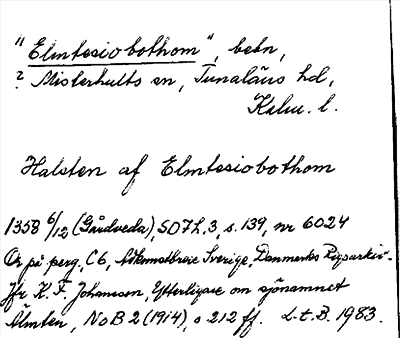 "Elmtesiobothom", bebn,
? Misterhults sn, Tunaläns hd,
Kalm. l.
Halsten af Elmtesiobothom
1358 6/12 (Gårdveda), SD 7:1,3, s. 139, nr 6024
Or på perg, C6, Sverige, Danmarks Rigsarkiv.
Jfr K. F. Johansson, Ytterligare om sjönamnet
Älmten, NoB 2 (1914), s 212 ff. L.t.B. 1983.